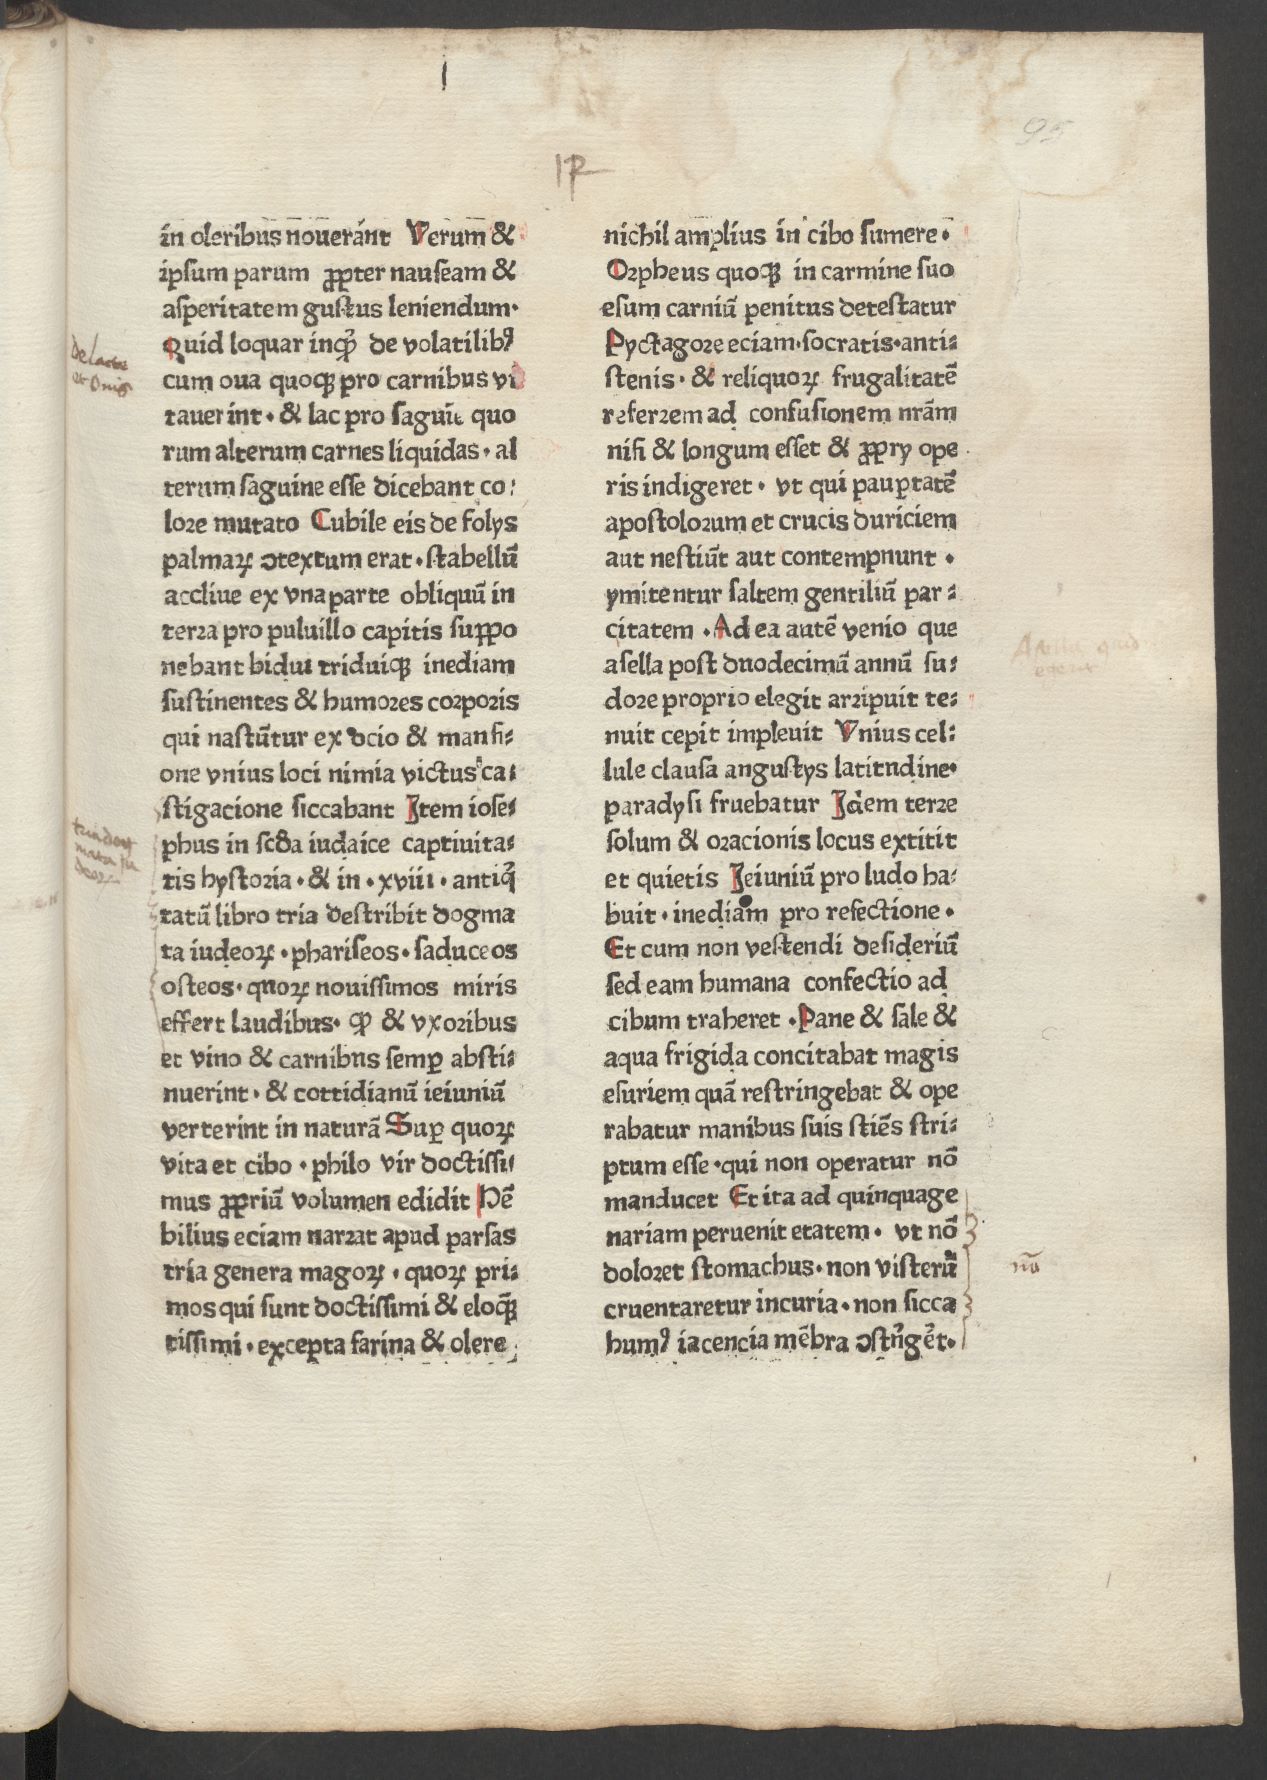 I
17
95
in oleribus nouerant Verum &
ipsum parum ꝓpter nauseam &
asperitatem gustus leniendum·
Quid loquar inqͥꝫ de volatilibꝰ
De lacte
et Ouis
cum oua quoqꝫ pro carnibus vi
tauerint · & lac pro saguīe quo
rum alterum carnes liquidas · al
terum saguine esse dicebant co:
lore mutato Cubile eis de folys
palmaꝝ ↄtextum erat · stabellū
accliue ex vna parte obliquū in
terra pro puluillo capitis suppo
nebant bidui triduiqꝫ inediam
sustinentes & humores corporis
qui nascūtur ex ocio & mansi⸗
one vnius loci nimia victus ca⸗
stigacione siccabant Item iose⸗
phus in scd̄a iudaice captiuita⸗
tis hystoria · & in · xviii · antiqͥ
tatū libro tria describit dogma
ta iudeoꝝ · phariseos · saduceos
osteos · quoꝝ nouissimos miris
effert laudibus · ꝙ & vxoribus
et vino & carnibus semꝑ absti⸗
nuerint · & cottidianū ieiuniū
verterint in naturā Suꝑ quoꝝ
vita et cibo · philo vir doctissi⸗
mus ꝓpriū volumen edidit Ne
bilius eciam narrat apud parsas
tria genera magoꝝ · quoꝝ pri⸗
mos qui sunt doctissimi & eloqꝫ
tissimi · excepta farina & olere
nichil amplius in cibo sumere ·
Orpheus quoqꝫ in carmine suo
esum carniū penitus detestatur
Pyctagore eciam · socratis · anti⸗
stenis · & reliquoꝝ frugalitatē
referrem ad confusionem nrām
nisi & longum esset & ꝓpry ope
ris indigeret · vt qui pauꝑtatē
apostolorum et crucis duriciem
aut nesciūt aut contempnunt ·
ymitentur saltem gentiliū par⸗
citatem · Ad ea autē venio que
Asella quid
egerit
asella post duodecimū annū su⸗
dore proprio elegit arripuit te⸗
nuit cepit impleuit Vnius cel⸗
lule clausa angustys latitudine·
paradysi fruebatur Idem terre
solum & oracionis locus extitit
et quietis Ieiuniū pro ludo ha⸗
buit · inediam pro refectione ·
Et cum non vescendi desideriū
sed eam humana confectio ad
cibum traheret · Pane & sale &
aqua frigida concitabat magis
esuriem quā restringebat & ope
rabatur manibus suis sciēs scri⸗
ptum esse · qui non operatur nō
manducet Et ita ad quinquage
nariam peruenit etatem · vt nō
doloret stomachus · non visterū
nō
cruentaretur incuria · non sicca
humꝰ iacencia mēbra ↄstrīgēt·